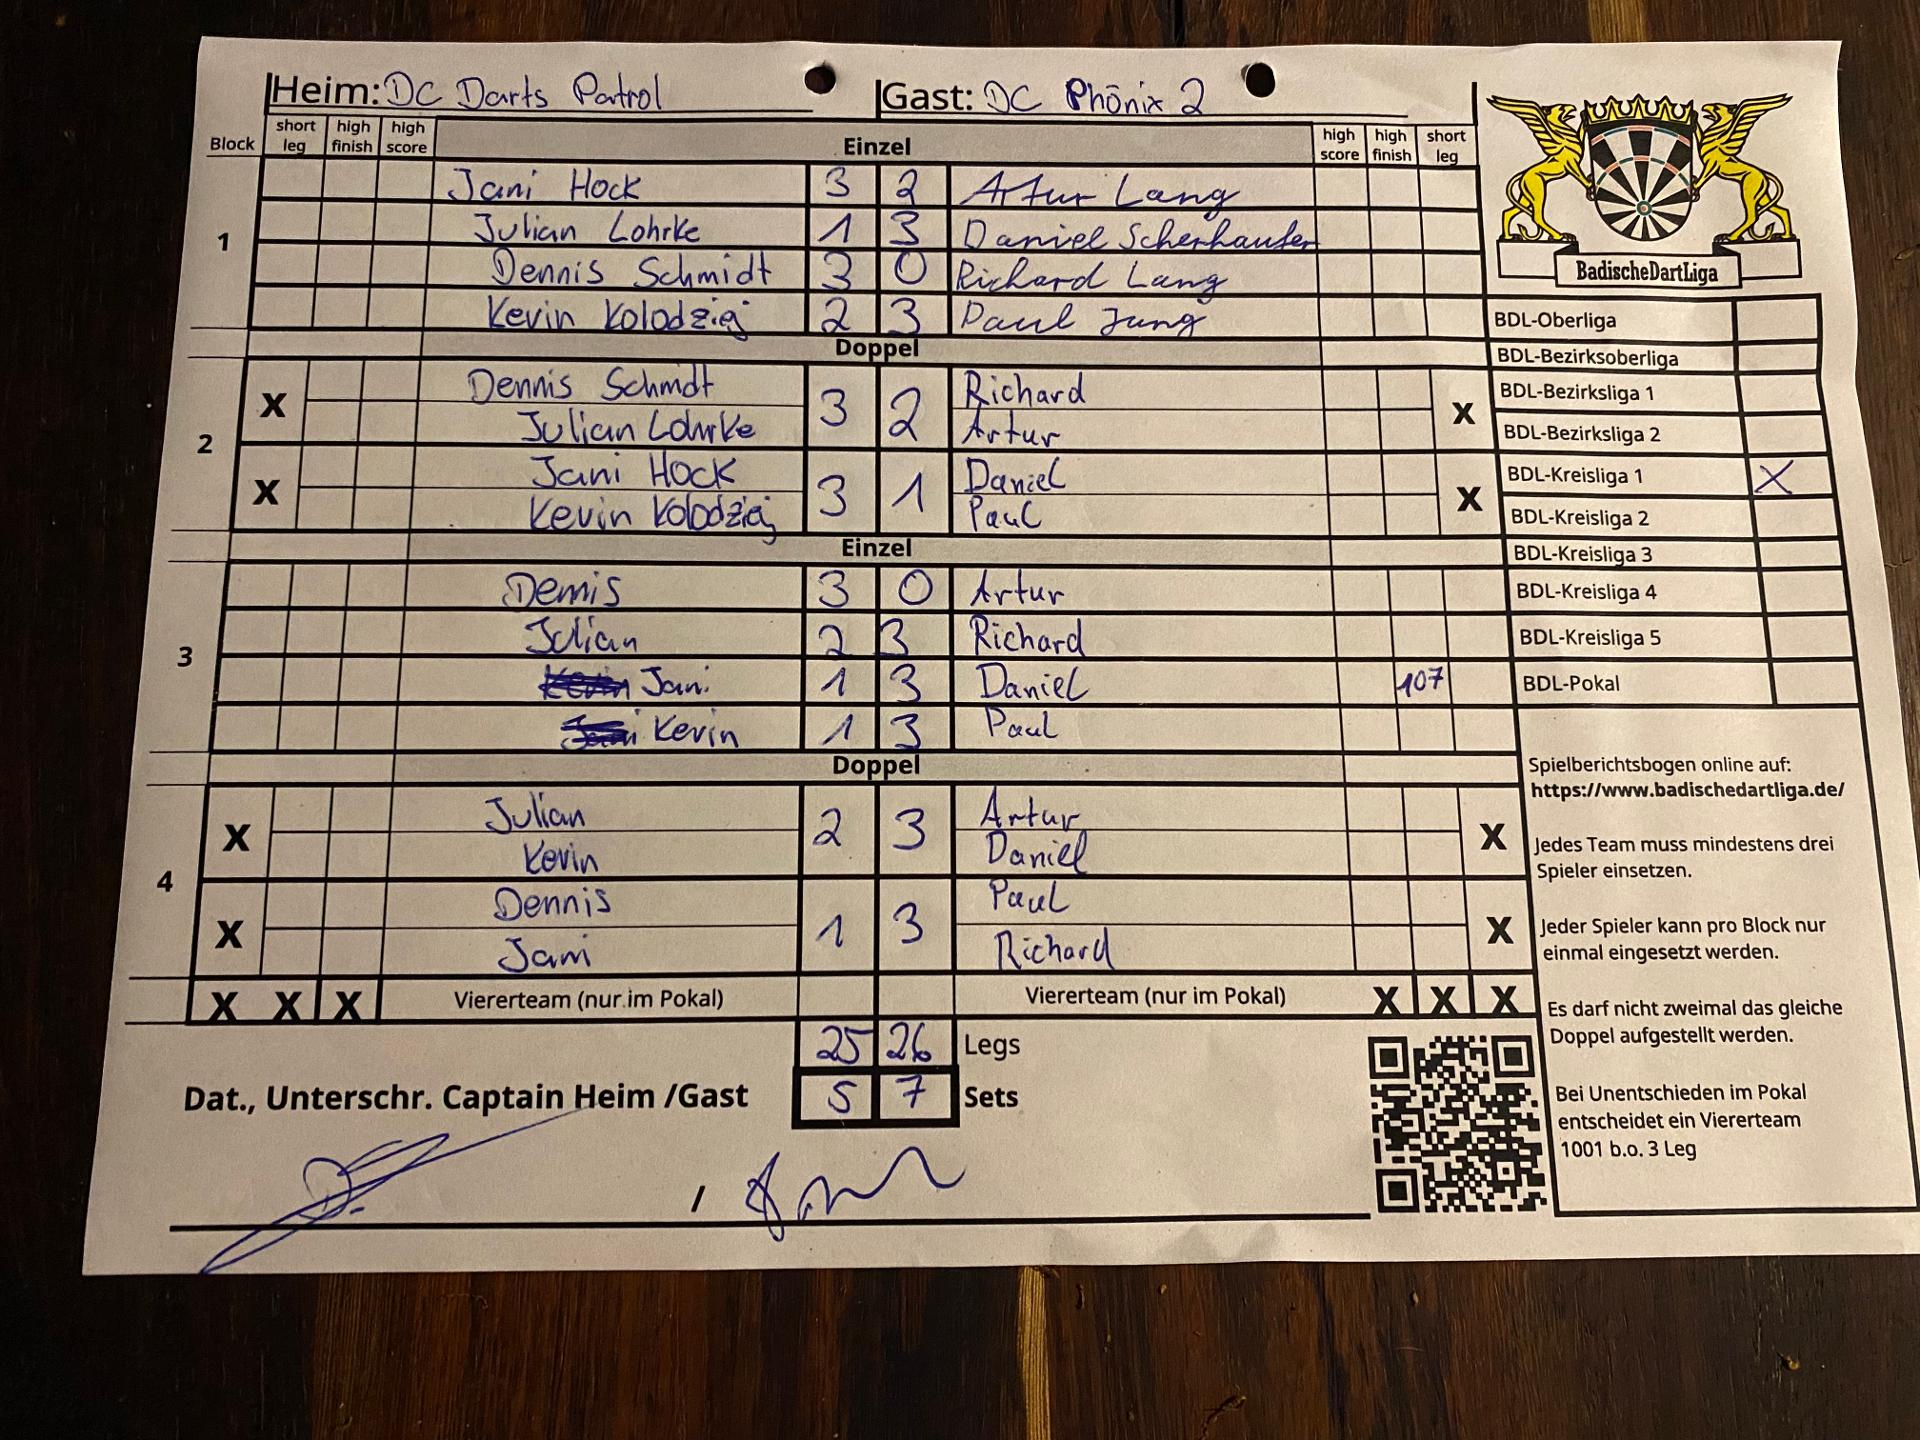 Heim: DC Darts Patrol Gast: DC Phönix 2
Block short leg high finish high score Einzel high score high finish short leg
1
Jani Hock 3 2 Artur Lang
Julian Lohrke 1 3 Daniel Scherhaufer
Dennis Schmidt 3 0 Richard Lang
Kevin Kolodziej 2 3 Paul Jung
Doppel
2
X Dennis Schmdt 3 2 Richard X
Julian Lohrke Artur
X Jani Hock 3 1 Daniel X
Kevin Kolodziej Paul
Einzel
3
Dennis 3 0 Artur
Julian 2 3 Richard
Kevin Jani 1 3 Daniel 107
Jani Kevin 1 3 Paul
Doppel
4
X Julian 2 3 Artur X
Kevin Daniel
X Dennis 1 3 Paul X
Jani Richard
X X X Viererteam (nur im Pokal) Viererteam (nur im Pokal) X X X
25 26 Legs
Dat., Unterschr. Captain Heim /Gast 5 7 Sets
/
BadischeDartLiga
BDL-Oberliga
BDL-Bezirksoberliga
BDL-Bezirksliga 1
BDL-Bezirksliga 2
BDL-Kreisliga 1 X
BDL-Kreisliga 2
BDL-Kreisliga 3
BDL-Kreisliga 4
BDL-Kreisliga 5
BDL-Pokal
Spielberichtsbogen online auf:
https://www.badischedartliga.de/
Jedes Team muss mindestens drei
Spieler einsetzen.
Jeder Spieler kann pro Block nur
einmal eingesetzt werden.
Es darf nicht zweimal das gleiche
Doppel aufgestellt werden.
Bei Unentschieden im Pokal
entscheidet ein Viererteam
1001 b.o. 3 Leg